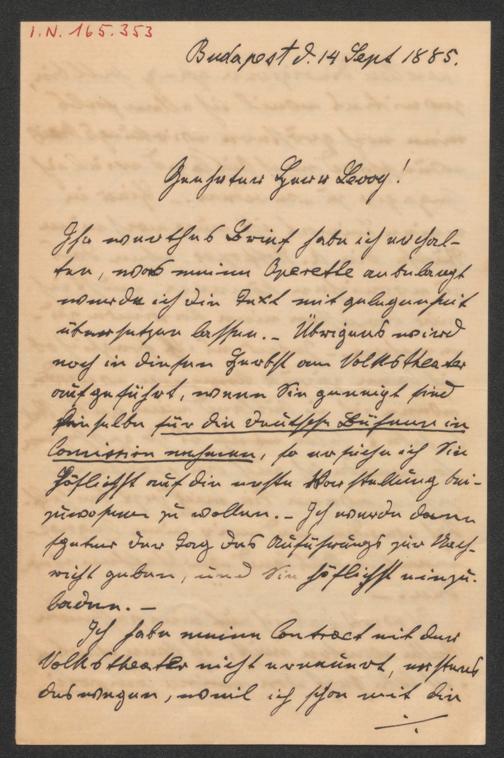 I.N. 165.353
Budapest d. 14 Sept 1885.
Geehrter Herr Levy!
Ihr werthes Brief habe ich erhal-
ten, was meine Operette anbelangt
werde ich die Text mit gelegenheit
übersetzen lassen. – Übrigens wird
noch in diesen Herbst am Volkstheater
aufgeführt, wenn Sie geneigt sind
dieselbe für die deutsche Bühnen in
Comission nehmen, so ersuche ich Sie
höflichst auf die erste Vorstellung bei-
zuwohnen zu wollen. – Ich werde dann
später der Tag des Aufführungs zur Nach-
richt geben, und Sie höflichst einzu-
laden. –
Ich habe meine Contract mit der
Volkstheater nicht erneuert, erstens
deswegen, weil ich schon mit die